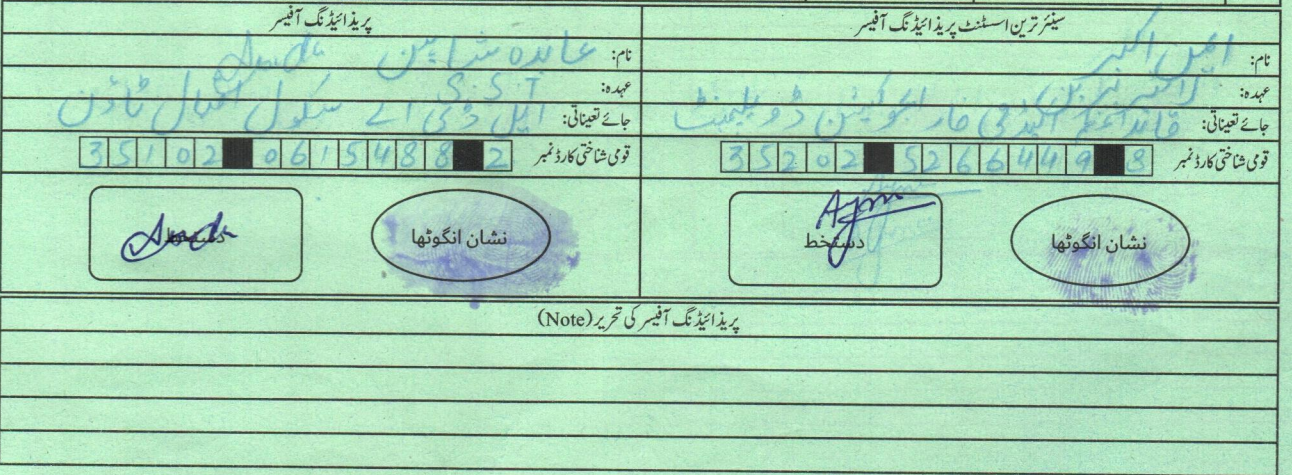 سینئر ترین اسسٹنٹ پریذائیڈنگ آفیسر
نام: ایمل اکبر
عہدہ:
جائے تعیناتی: قائد اعظم اکیڈمی فار ایجوکیشن ڈویلپمنٹ
قومی شناختی کارڈ نمبر 35202 5266449 8
نشان انگوٹھا
دستخط
پریذائیڈنگ آفیسر
نام: عابدہ شاہین
عہدہ: S.S.T
جائے تعیناتی: ایل ڈی اے سکول اقبال ٹاؤن
قومی شناختی کارڈ نمبر 35102 0615488 2
نشان انگوٹھا
دستخط
پریذائیڈنگ آفیسر کی تحریر (Note)